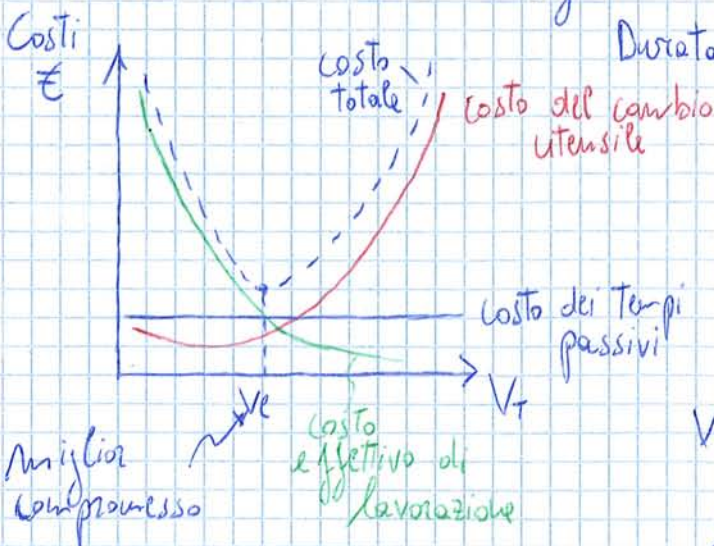 Costi
€
Durata
costo
totale
costo del cambio
utensile
costo dei Tempi
passivi
VT
Ve
miglior
compromesso
costo
effettivo di
lavorazione
V